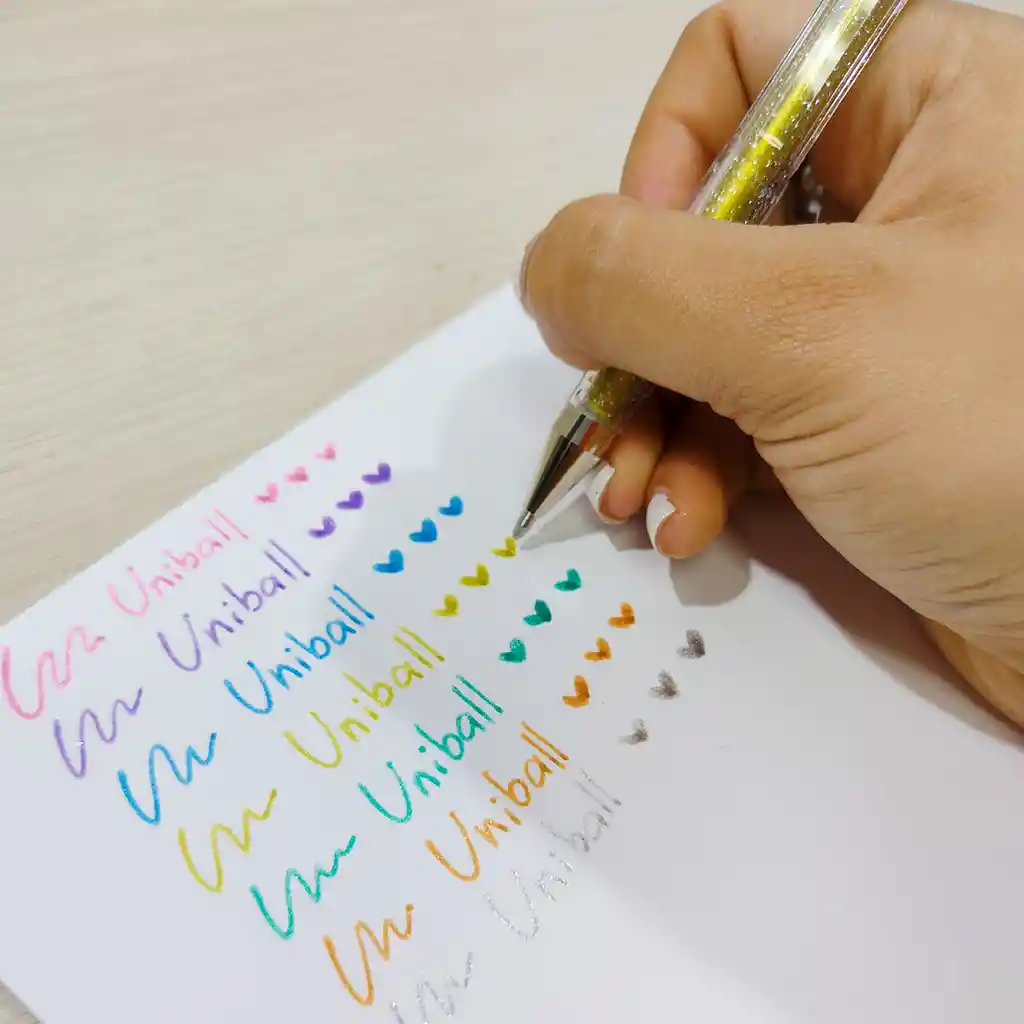 Uniball
Uniball
Uniball
Uniball
Uniball
Uniball
Uniball